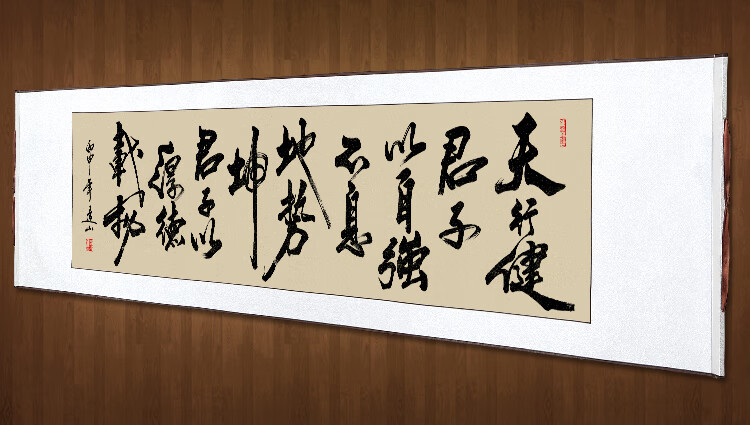 天行健
君子
以自强
不息
地势
坤
君子以
厚德
载物
丙申年远山